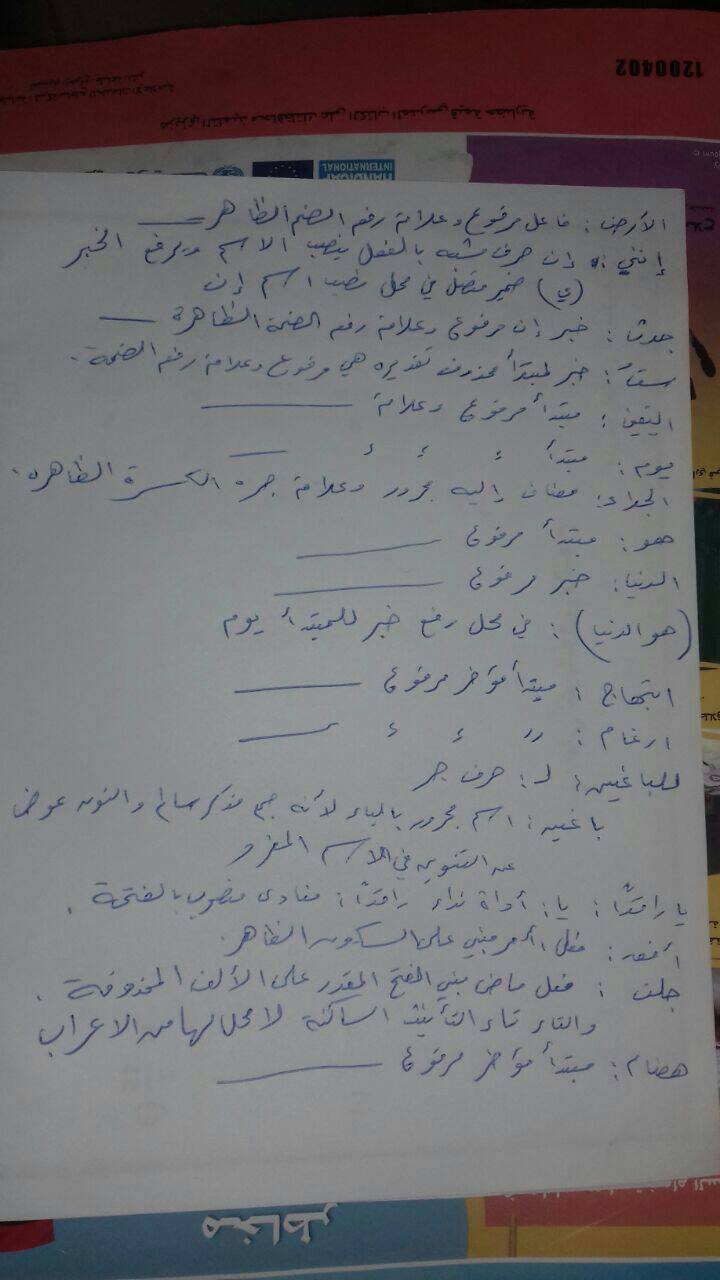 1200402
عزيزي التلميذ محافظتك على الكتاب المدرسي قيمة حضارية
HANDICAP INTERNATIONAL
الأرض : فاعل مرفوع وعلامة رفعه الضم الظاهر
إنني : إن حرف مشبه بالفعل ينصب الاسم ويرفع الخبر
(ي) ضمير متصل في محل نصب اسم إن
خبر إن مرفوع وعلامة رفعه الضمة الظاهرة
خبر لمبتدأ محذوف تقديره هي مرفوع وعلامة رفعه الضمة .
مبتدأ مرفوع وعلامة
يوم : مبتدأ ء ء ء
مضاف إليه مجرور وعلامة جره الكسرة الظاهرة .
هو : مبتدأ مرفوع
الدنيا : خبر مرفوع
(هو الدنيا) : في محل رفع خبر للمبتدأ يوم
ابتهاج : مبتدأ مؤخر مرفوع
ارغام : // ء ء
للباغين : لـ : حرف جر
باغين : اسم مجرور بالياء لأنه جمع مذكر سالم والنون عوض
عن التنوين في الاسم المفرد
يا راقدًا : يا : أداة نداء راقدًا : منادى منصوب بالفتحة .
فعل أمر مبني على السكون الظاهر .
جلت : فعل ماض مبني الفتح المقدر على الألف المحذوفة .
والتاء تاء التأنيث الساكنة لا محل لها من الاعراب
مبتدأ مؤخر مرفوع
مخاطر